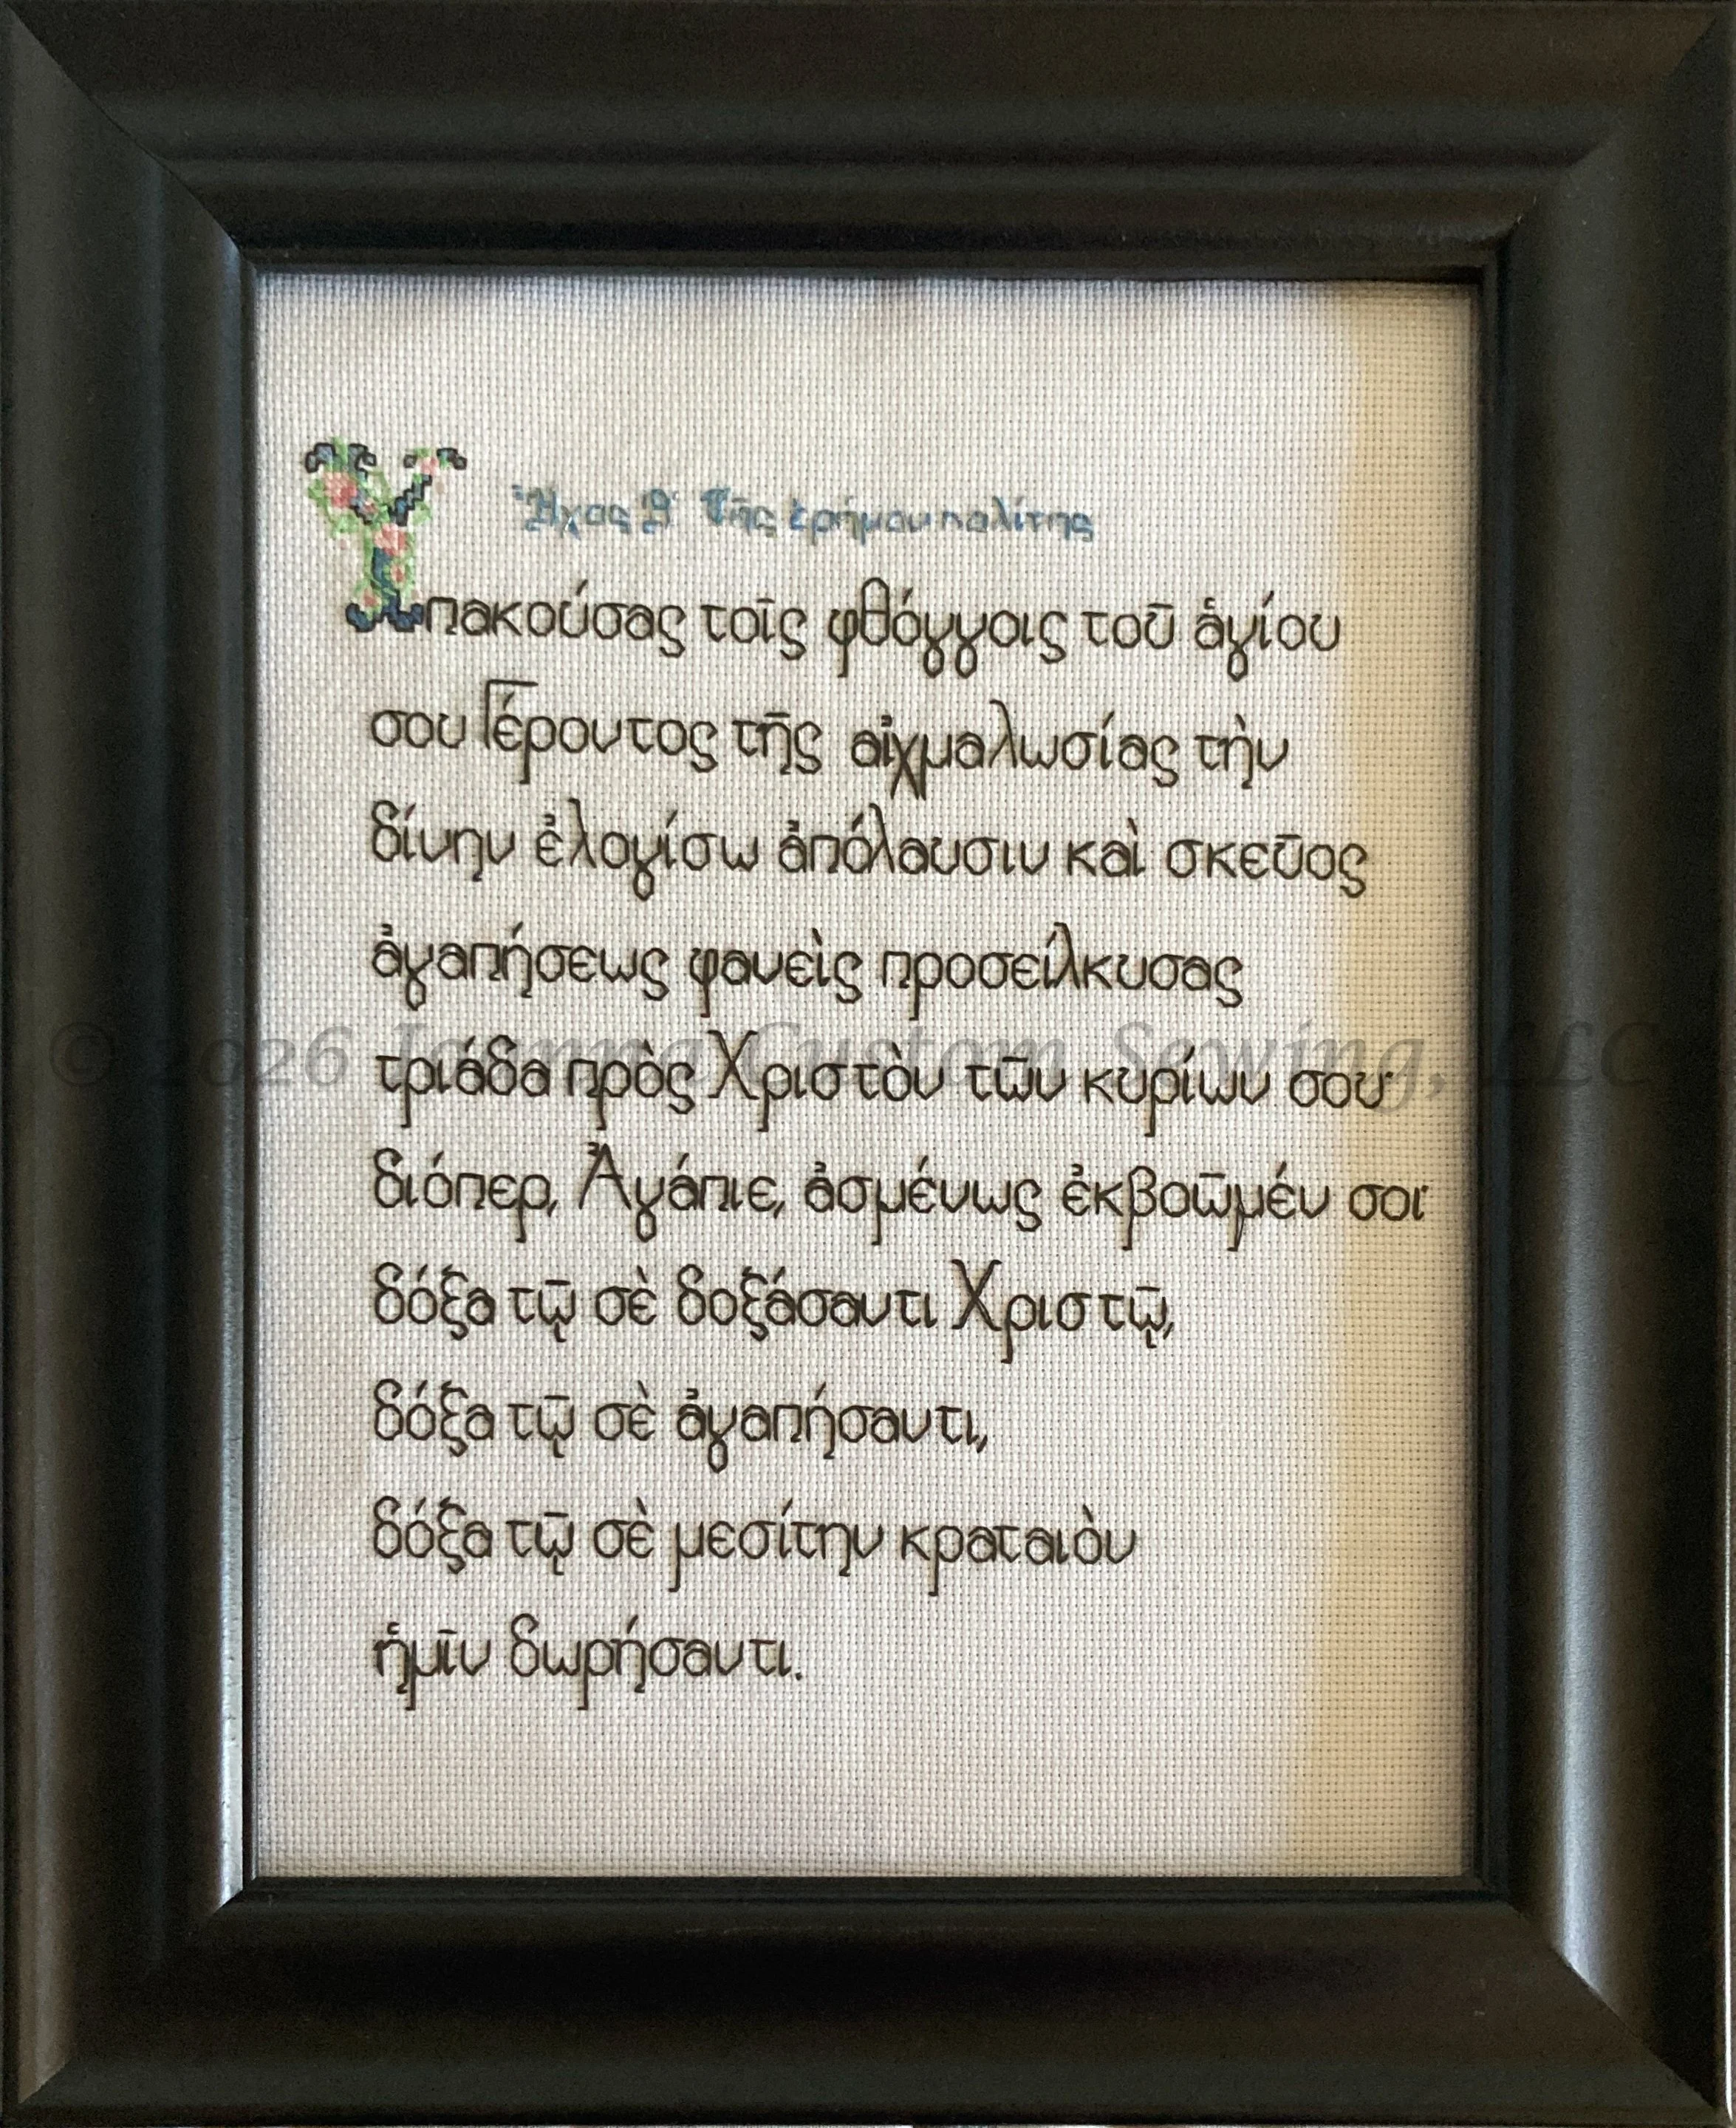 Ἦχος Α΄ Τῆς ἐρήμου πολίτης
Ὑπακούσας τοῖς φθόγγοις τοῦ ἁγίου
σου Γέροντος τῆς αἰχμαλωσίας τὴν
δίνην ἐλογίσω ἀπόλαυσιν καὶ σκεῦος
ἀγαπήσεως φανεὶς προσείλκυσας
© 2026 Ioanna Custom Sewing, LLC
τριάδα πρὸς Χριστὸν τῶν κυρίων σου·
διόπερ, Ἀγάπιε, ἀσμένως ἐκβοῶμέν σοι·
δόξα τῷ σὲ δοξάσαντι Χριστῷ,
δόξα τῷ σὲ ἀγαπήσαντι,
δόξα τῷ σὲ μεσίτην κραταιὸν
ἡμῖν δωρήσαντι.